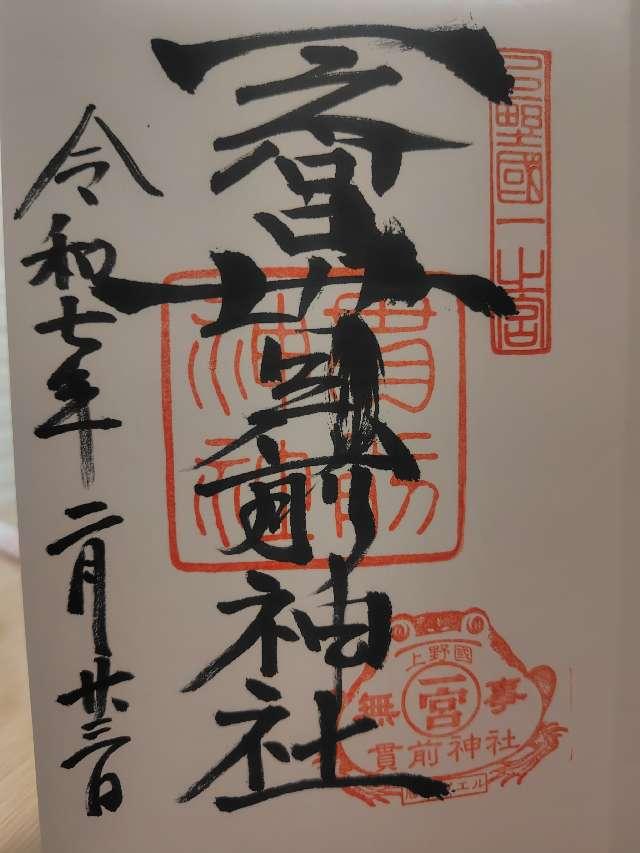 上野國一之宮
一之宮貫前神社
貫前
神社
令和七年二月廿三日
上野國
無 一宮 事
貫前神社